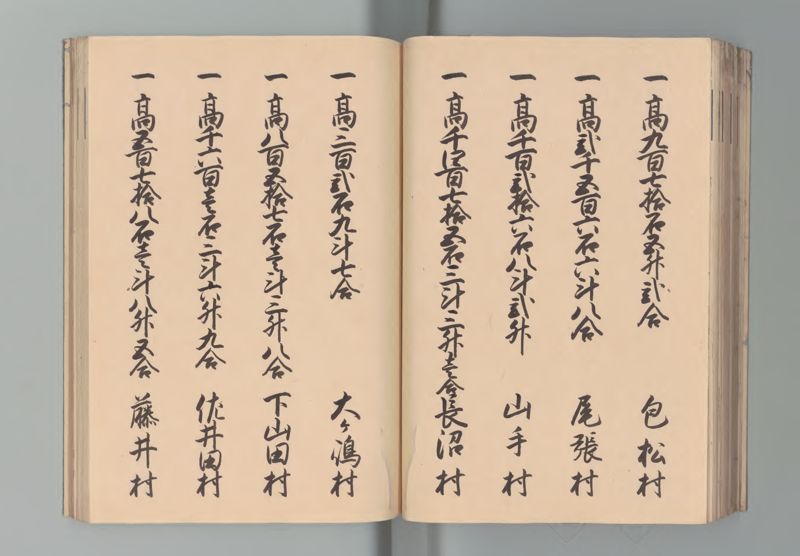 一 高九百七拾石五升弐合 包松村
一 高弐千五百六石六斗八合 尾張村
一 高千百弐拾六石八斗弐升 山手村
一 高千四百七拾五石三斗三升壱合 長沼村
一 高三百弐石九斗七合 大ヶ嶋村
一 高八百五拾七石壱斗三升八合 下山田村
一 高千六百壱石三斗六升九合 佐井田村
一 高五百七拾八石壱斗八升五合 藤井村